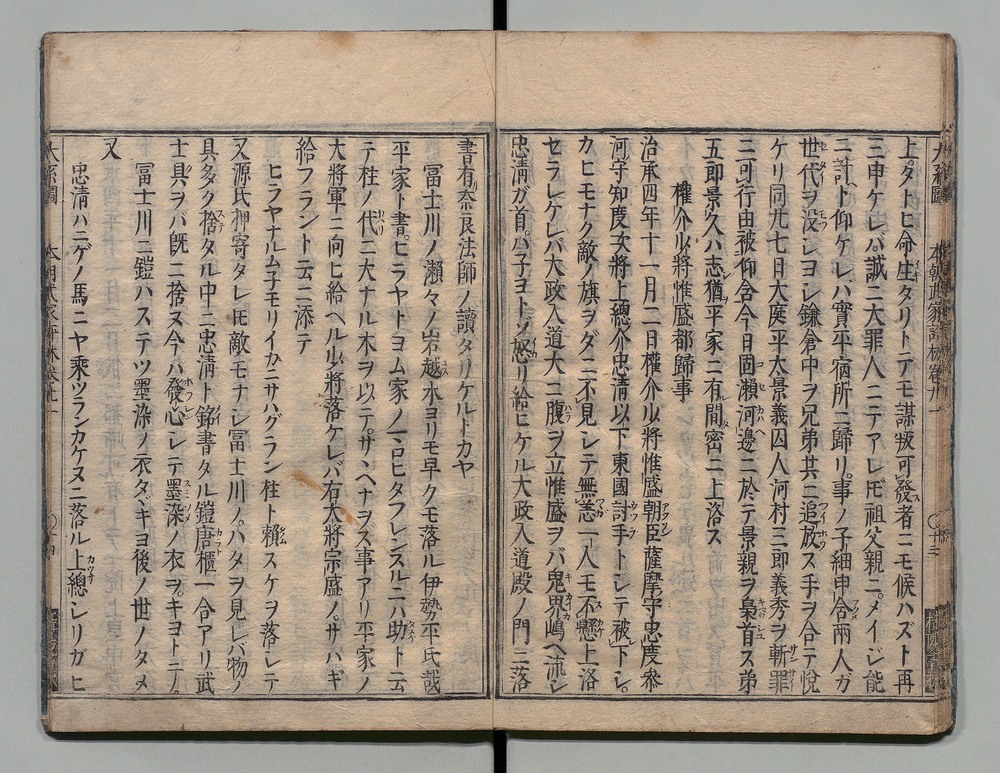 上。タトヒ命生タリトニテモ謀叛可發者ニモ候ハズト再
三申ケレバ誠ニ大罪人ニテアレ𪜈祖父親ニ。メイジ能
ニ討ト仰ケレバ實平宿所ニ歸リ。事ノ子細申合兩人ガ
世代ヲ没シヨレ鎌倉中ヲ兄弟共ニ追放ス手ヲ合テ悦
ケリ同九七日大庭平太景義囚人河村三郎義秀ヲ斬罪
ニ可行由被仰含今日固瀬河邊ニ於テ景親ヲ梟首ス弟
五郎景久ハ志猶平家ニ有間密ニ上洛ス
權介少將惟盛都歸事
治承四年十一月二日權介少將惟盛朝臣薩摩守忠度参
河守知度次將上總介忠清以下東國討手トシテ被下シ。
カヒモナク敵ノ旗ヲダニ不見シテ無恙一人モ不懸上洛
セラレケレバ大政入道大ニ腹ヲ立惟盛ヲバ鬼界嶋ヘ流シ
忠清ガ首。ハ子ヨトゾ怒リ給ヒケル大政入道殿ノ門ニ落
書有奈良法師ノ讀タリケルトカヤ
冨士川ノ瀬々ノ岩越水ヨリモ早クモ落ル伊勢平氏哉
平家ト書。ヒラヤトヨム家ノマロヒタフレンスルニハ助トニ云
テ柱ノ代ニ大ナル木ヲ以テ。サヽヘナヲス事アリ平家ノ
大將軍ニ向ヒ給ヘル少將落ケレバ右大將宗盛ノ。サハギ
給フラントニ云ニ添テ
ヒラヤナルム子モリイカニサハグラン柱ト賴スケヲ落シテ
又源氏押寄タレ𪜈敵モナシ冨士川ノ。ハタヲ見レバ物ノ
具多ク捨タル中ニ忠清ト銘書タル鎧唐櫃一合アリ武
士具ヲバ既ニ捨ヌ今ハ發心シテ墨染ノ衣ヲ。キヨトニテ
冨士川ニ鎧ハステツ墨染ノ衣タヾキヨ後ノ世ノタメ
又
忠清ハニゲノ馬ニヤ乘ツランカケヌニ落ル上總シリガヒ